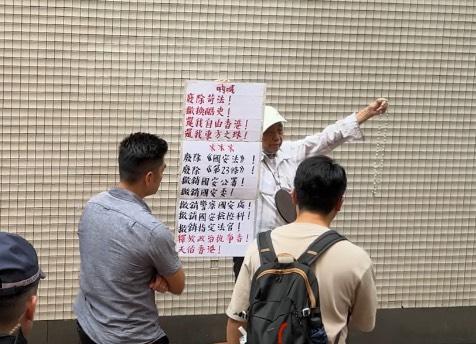 廢除苛法！
撤換酷吏！
還我自由香港！
還我東方之珠！
※※※
廢除《國安法》！
廢除《第23條》！
撤銷國安公署！
撤銷國安委！
撤銷警察國安處！
撤銷國安檢控科！
撤銷指定法官！
釋放政治抗爭者！
天佑香港！